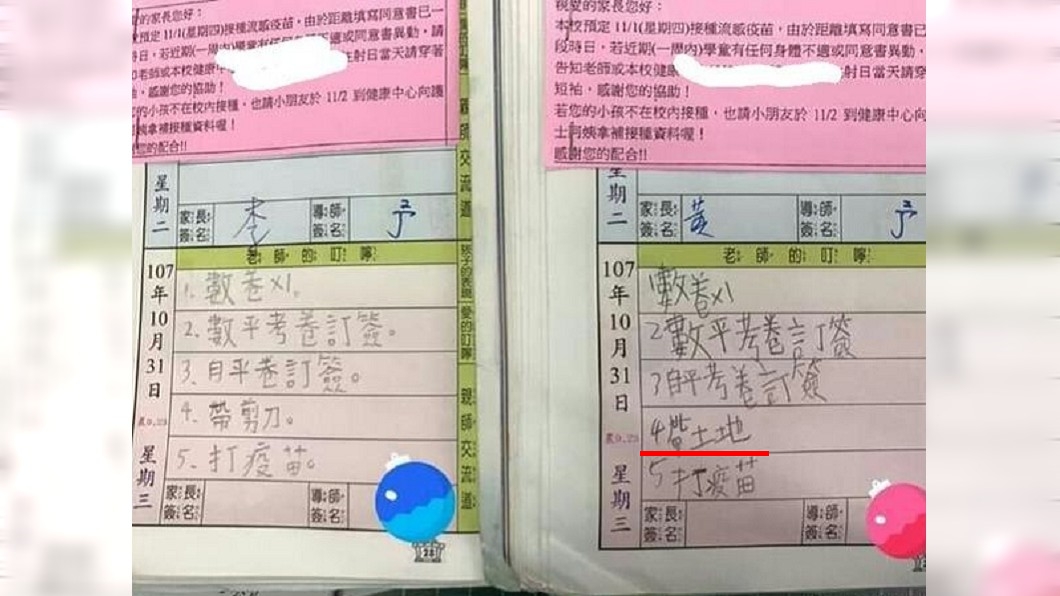 愛的家長您好：
校預定 11/1(星期四)接種流感疫苗，由於距離填寫同意書已一
時日，若近期(一周內)學童有任何
老師或本校健康中 射日當天請穿著
，感謝您的協助！
的小孩不在校內接種，也請小朋友於 11/2 到健康中心向護
阿姨拿補接種資料喔！
您的配合!!
星期二
家長簽名 李
導師簽名
老師的叮嚀
107年10月31日
農9.23
星期三
1. 數卷x1。
2. 數平考卷訂簽。
3. 自平卷訂簽。
4. 帶剪刀。
5. 打疫苗。
家長簽名
導師簽名
親師交流道
孩子的表現
愛的叮嚀
親師交流道
28
親愛的家長您好：
本校預定 11/1(星期四)接種流感疫苗，由於距離填寫同意書已一
段時日，若近期(一周內)學童有任何身體不適或同意書異動，
告知老師或本校健康 射日當天請穿
短袖，感謝您的協助！
若您的小孩不在校內接種，也請小朋友於 11/2 到健康中心向
士阿姨拿補接種資料喔！
感謝您的配合!!
星期二
家長簽名 黃
導師簽名
老師的叮嚀
107年10月31日
農9.23
星期三
1數卷x1
2數平考卷訂簽
3自平考卷訂簽
4帶土地
5打疫苗
家長簽名
導師簽名